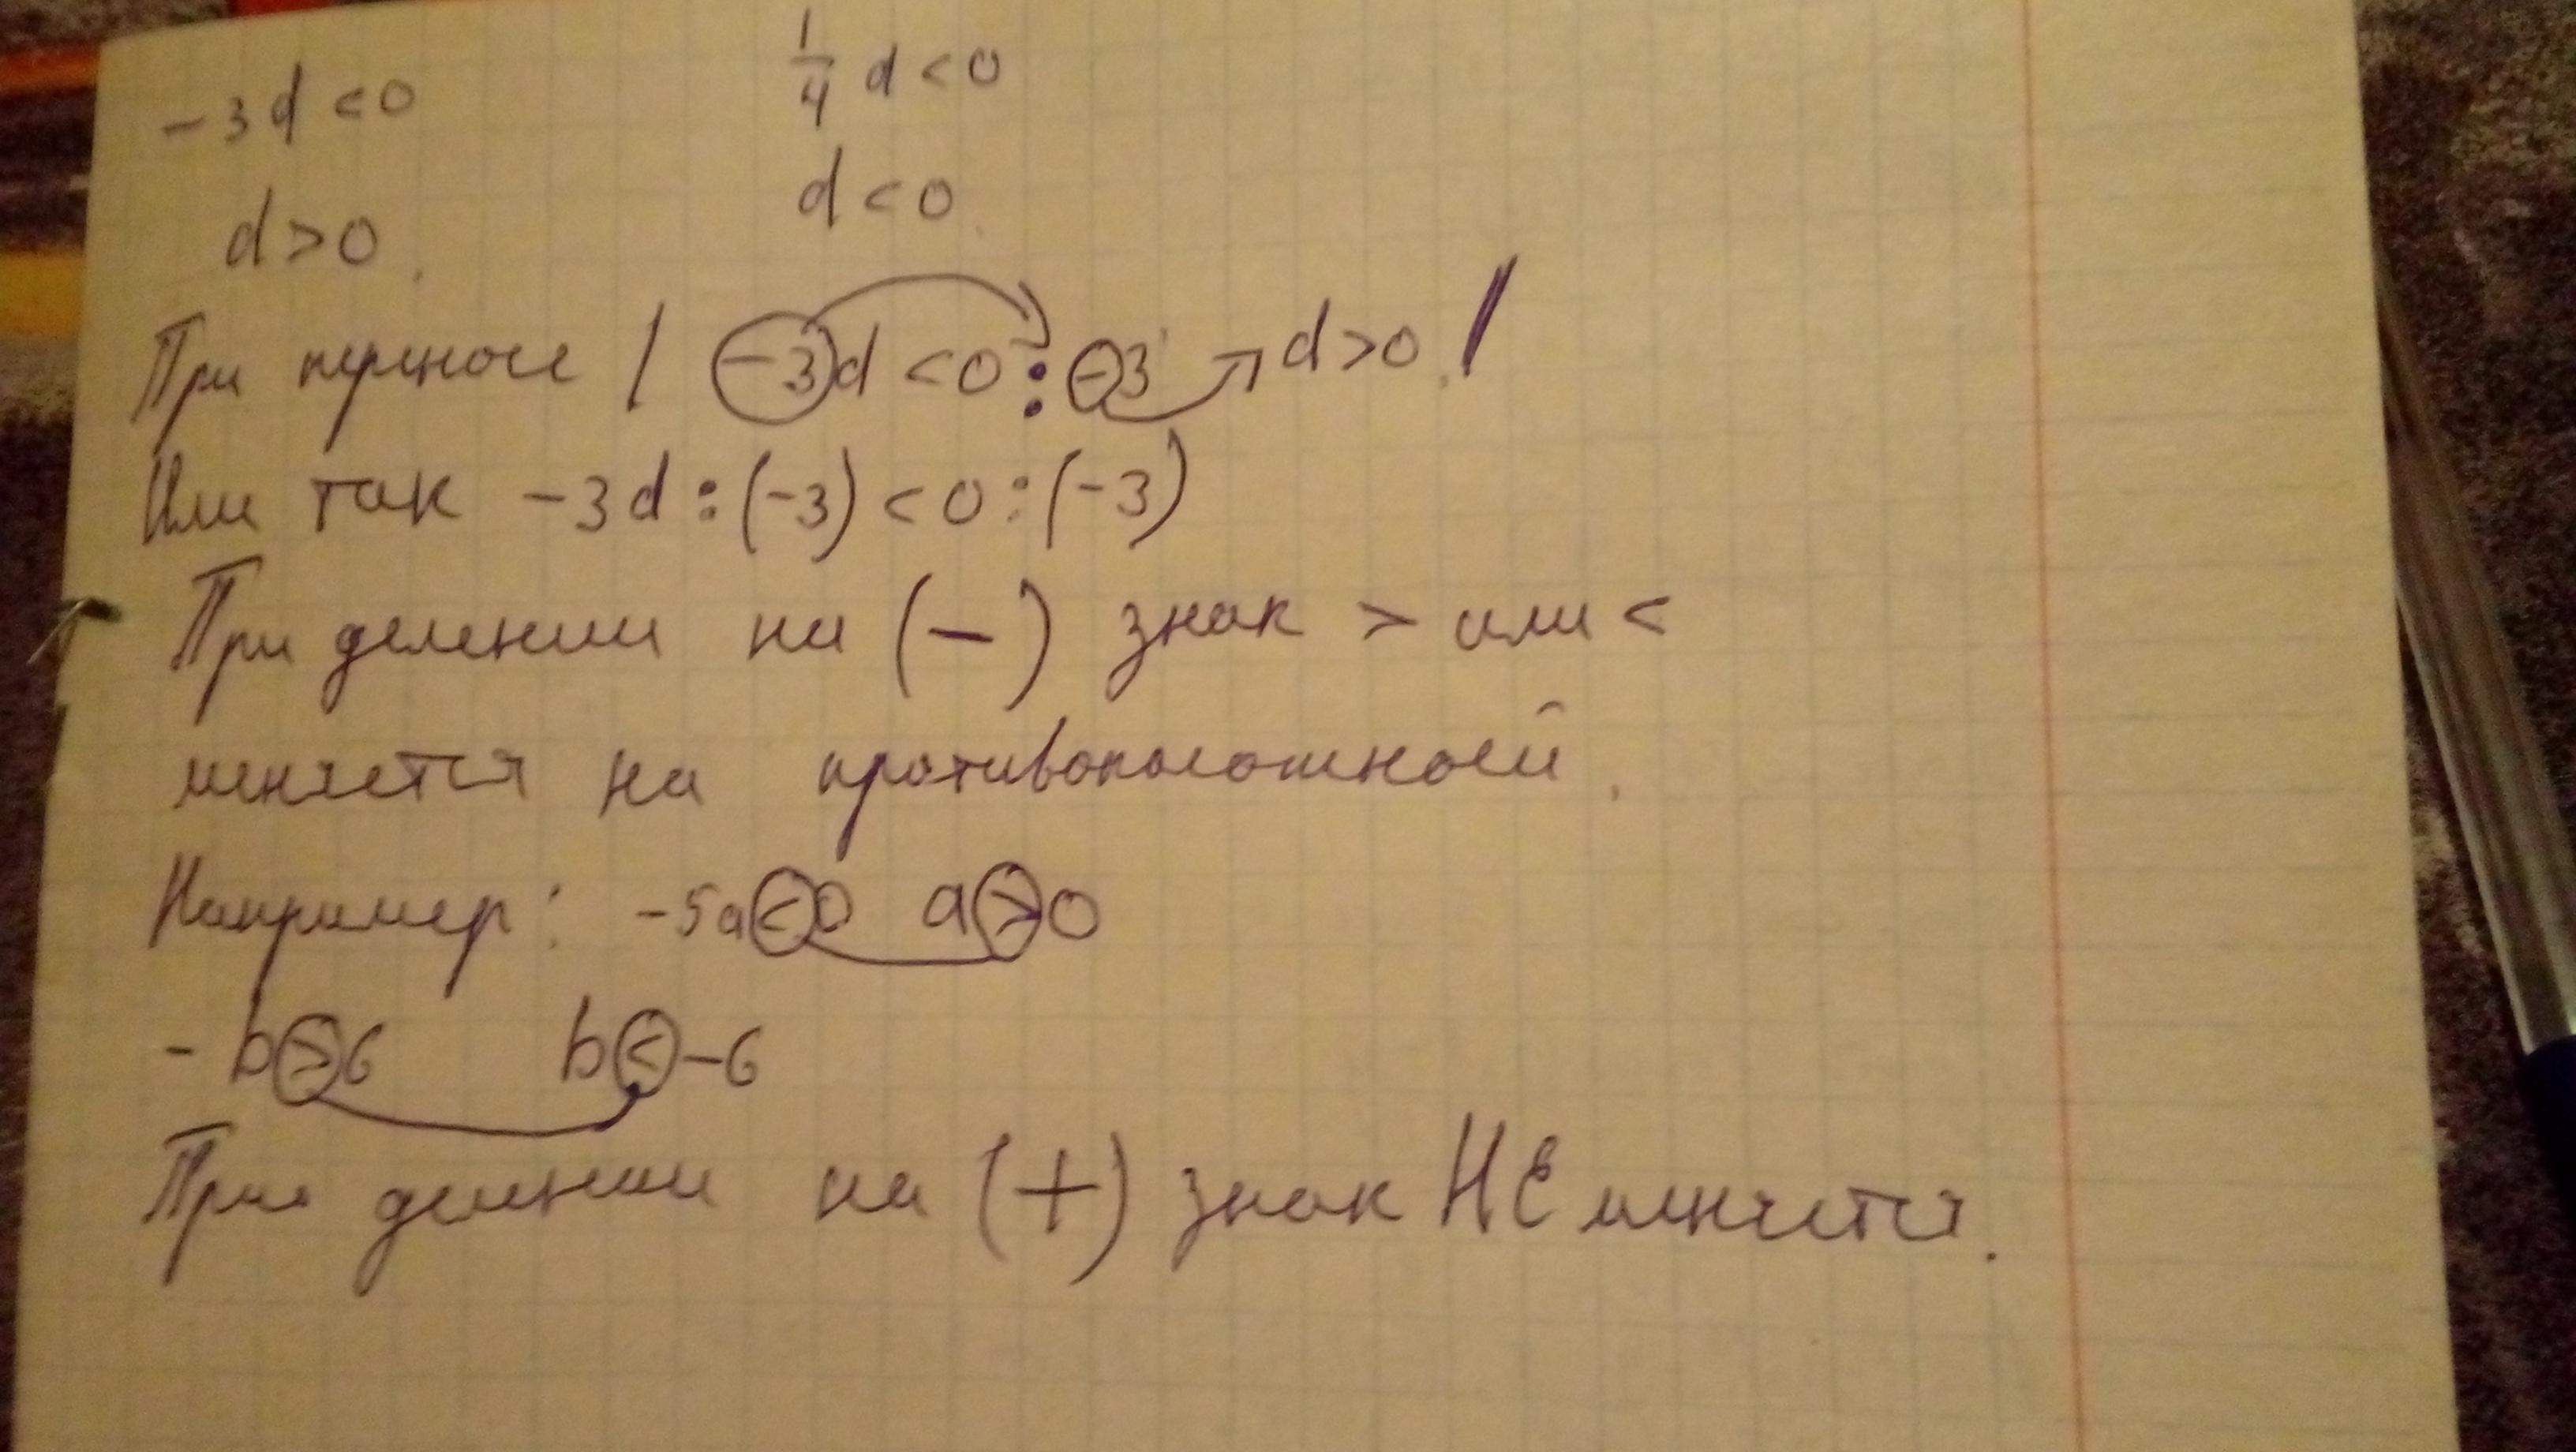 -3d<0 1/4 d<0
d>0. d<0.
При переносе | -3d<0:-3 d>0.|
Или так -3d:(-3)<0:(-3)
При делении на (-) знак > или <
меняется на противоположной.
Например: -5a<0 a>0
-b>6 b<-6
При делении на (+) знак НЕ меняется.